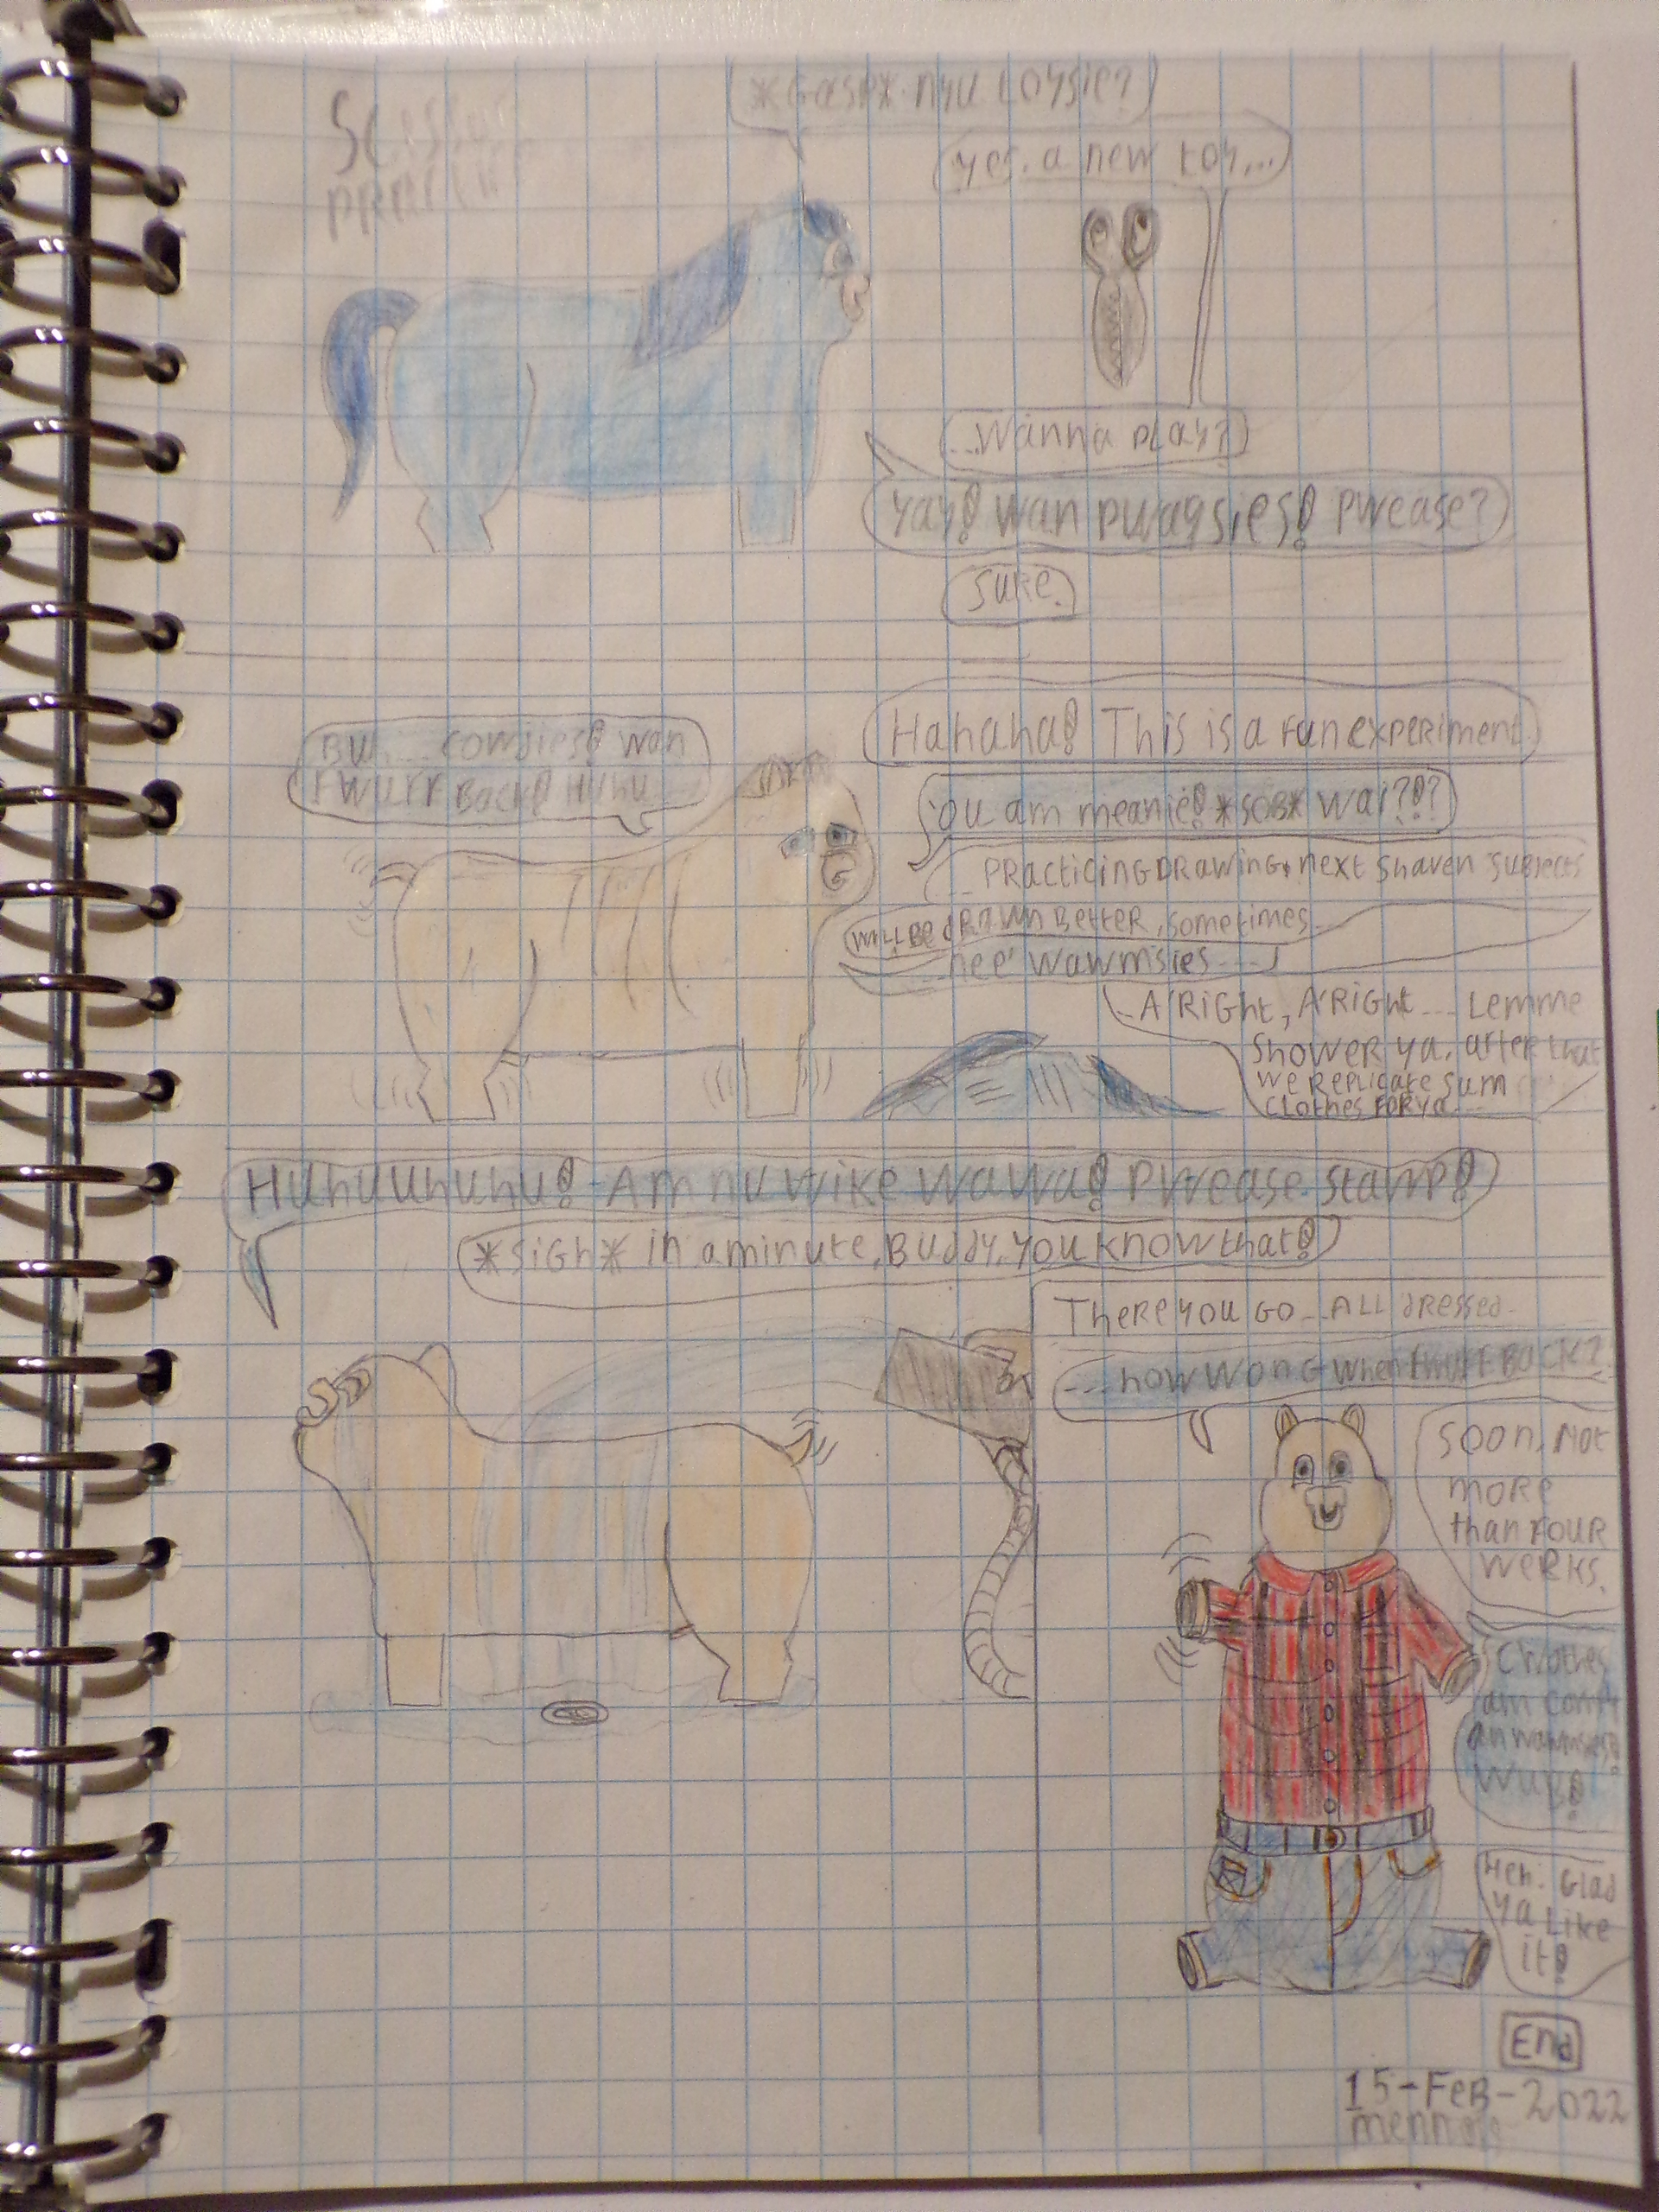 *GASP* nyu toysie?
yes. a new toy...
...wanna play?
yay! wan pwaysies! pwease?
sure.
Hahaha! This is a fun experiment
wan
fwuff back! Huhu
You am meanie! *SOB* wai?!?
...practicing drawing, next shaven subjects
will be drawn better, sometimes.
nee' wawmsies....
..A'right, A'right... Lemme
shower ya, after that
we replicate sum
clothes for ya...
Huhuuhuhu! Am nu wike wawa! pwease stawp!
*SIGH* in a minute, Buddy, you know that!
There you go...ALL dressed.
...how wong when fwuff back?
Soon, not
more
than four
weeks.
Cwothes
am comfy
an wawmsies!
Heh. Glad
ya like
it!
End
15-Feb-2022